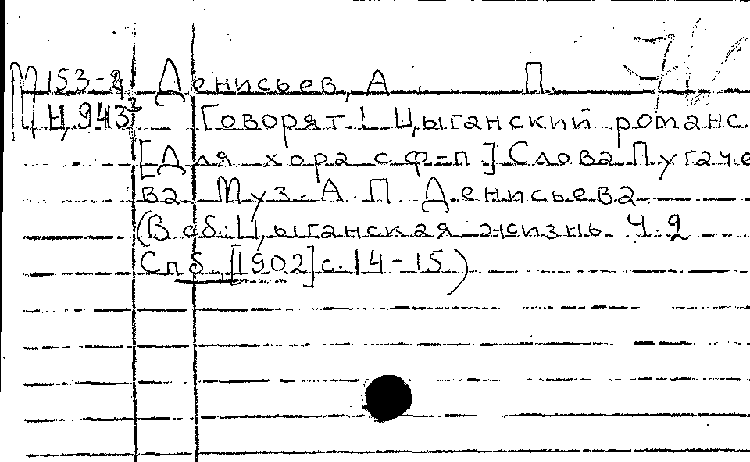 М 153-4 Денисьев, А. П.
Ц943² Говорят! Цыганский романс
[Для хора с ф-п.] Слова Пугаче
ва Муз. А. П. Денисьева
(В сб. Цыганская жизнь Ч. 2
Спб. [1902] с. 14-15)